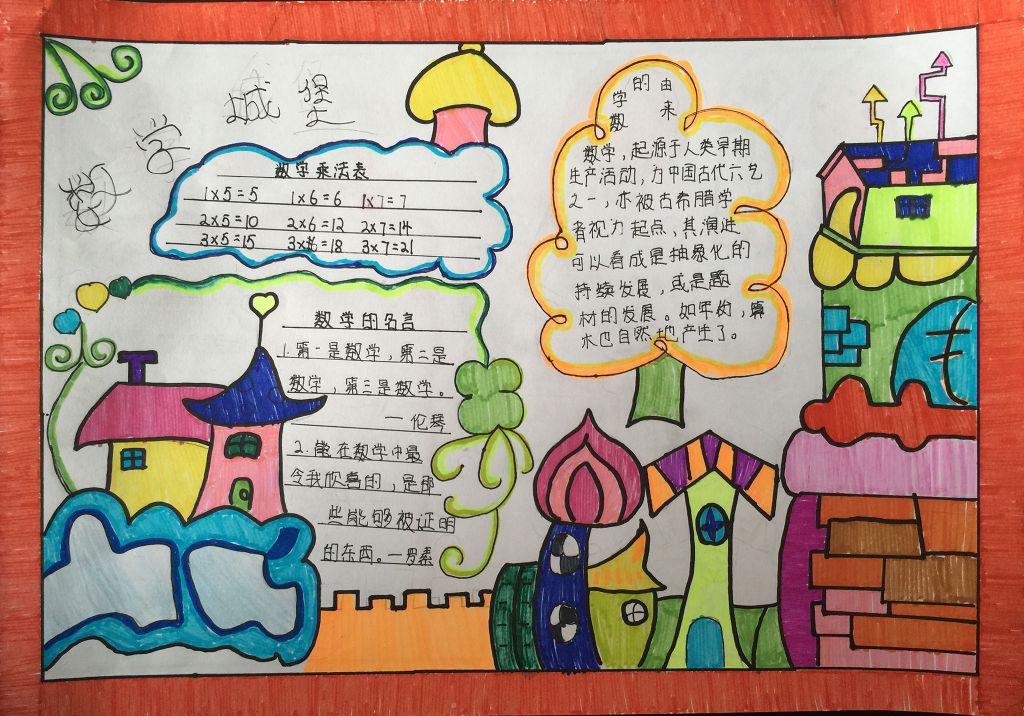 数学城堡
数学乘法表
1×5=5 1×6=6 1×7=7
2×5=10 2×6=12 2×7=14
3×5=15 3×6=18 3×7=21
数学的名言
1.第一是数学，第二是
数学，第三是数学。
一伦琴
2.能在数学中最
令我欣喜的，是那
些能够被证明
的东西。一罗素
数学的由来
数学，起源于人类早期
生产活动，为中国古代六艺
之一，亦被古希腊学
者视为起点，其演进
可以看成是抽象化的
持续发展，或是题
材的发展。如年份，算
术也自然地产生了。